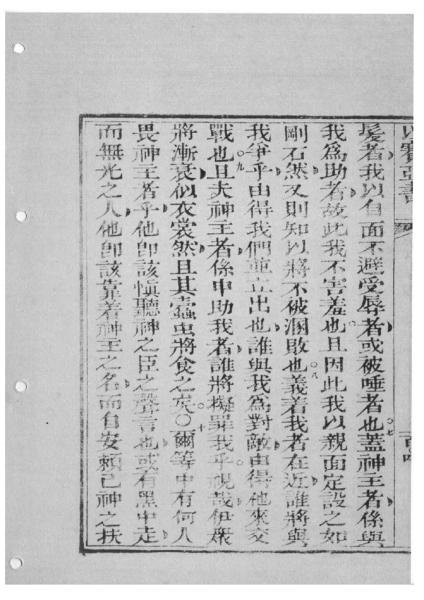 以賽亞書
髮者我以自面不避受辱者或被唾者也蓋神主者係與
我為助者故此我不害羞也且因此我以親面定設之如
剛石然又則知以將不被溷敗也義着我者在近誰將與
我爭乎由得我們並立出也誰與我為對敵由得他來交
戰也且夫神主者係申助我者誰將擬罪我乎視哉伊眾
將漸衰似衣裳然且其蠹虫將食之矣○爾等中有何人
畏神主者乎他即該慎聽神之臣之聲言也或有黑中走
而無光之人他即該靠着神主之名而自安賴己神之扶